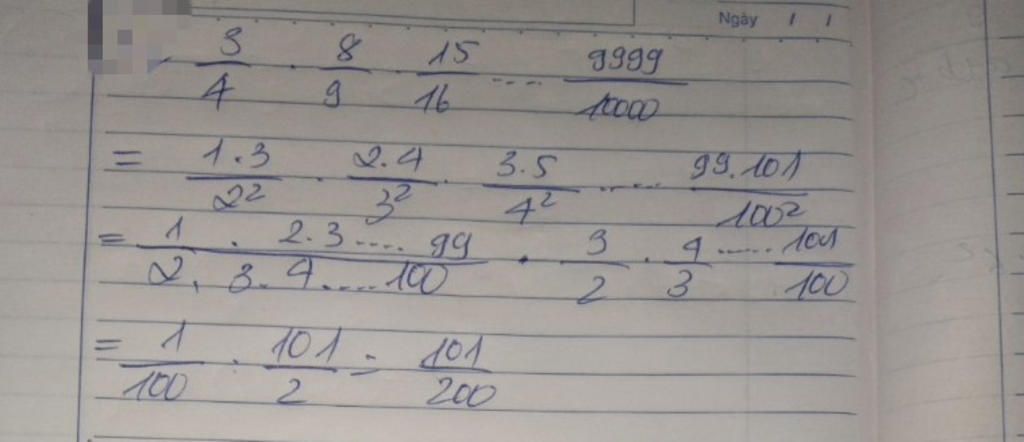 Ngày / /
3/4 . 8/9 . 15/16 .... 9999/10000
= 1.3/2² . 2.4/3² . 3.5/4² ..... 99.101/100²
= 1.2.3....99/2.3.4....100 . 3/2 . 4/3 ..... 101/100
= 1/100 . 101/2 = 101/200